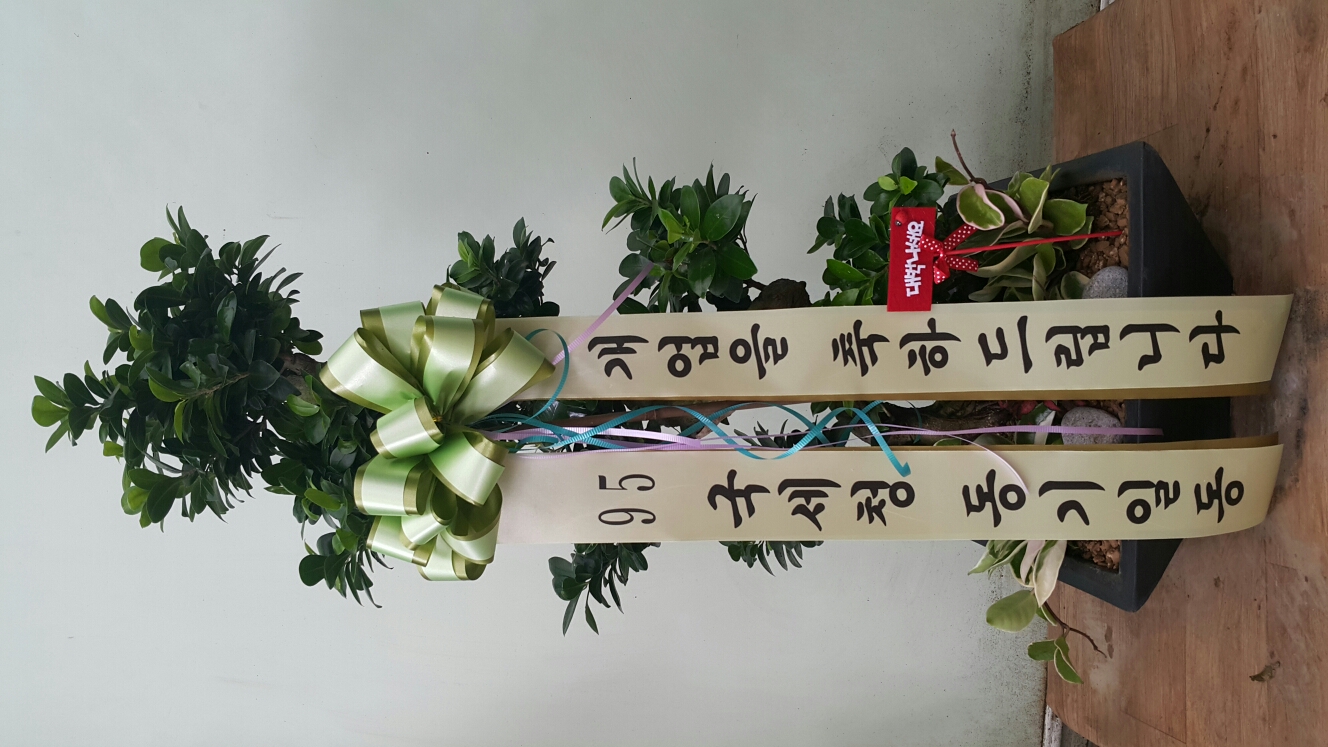 개업을 축하드립니다
95 국세청 동기일동
행복나누세요